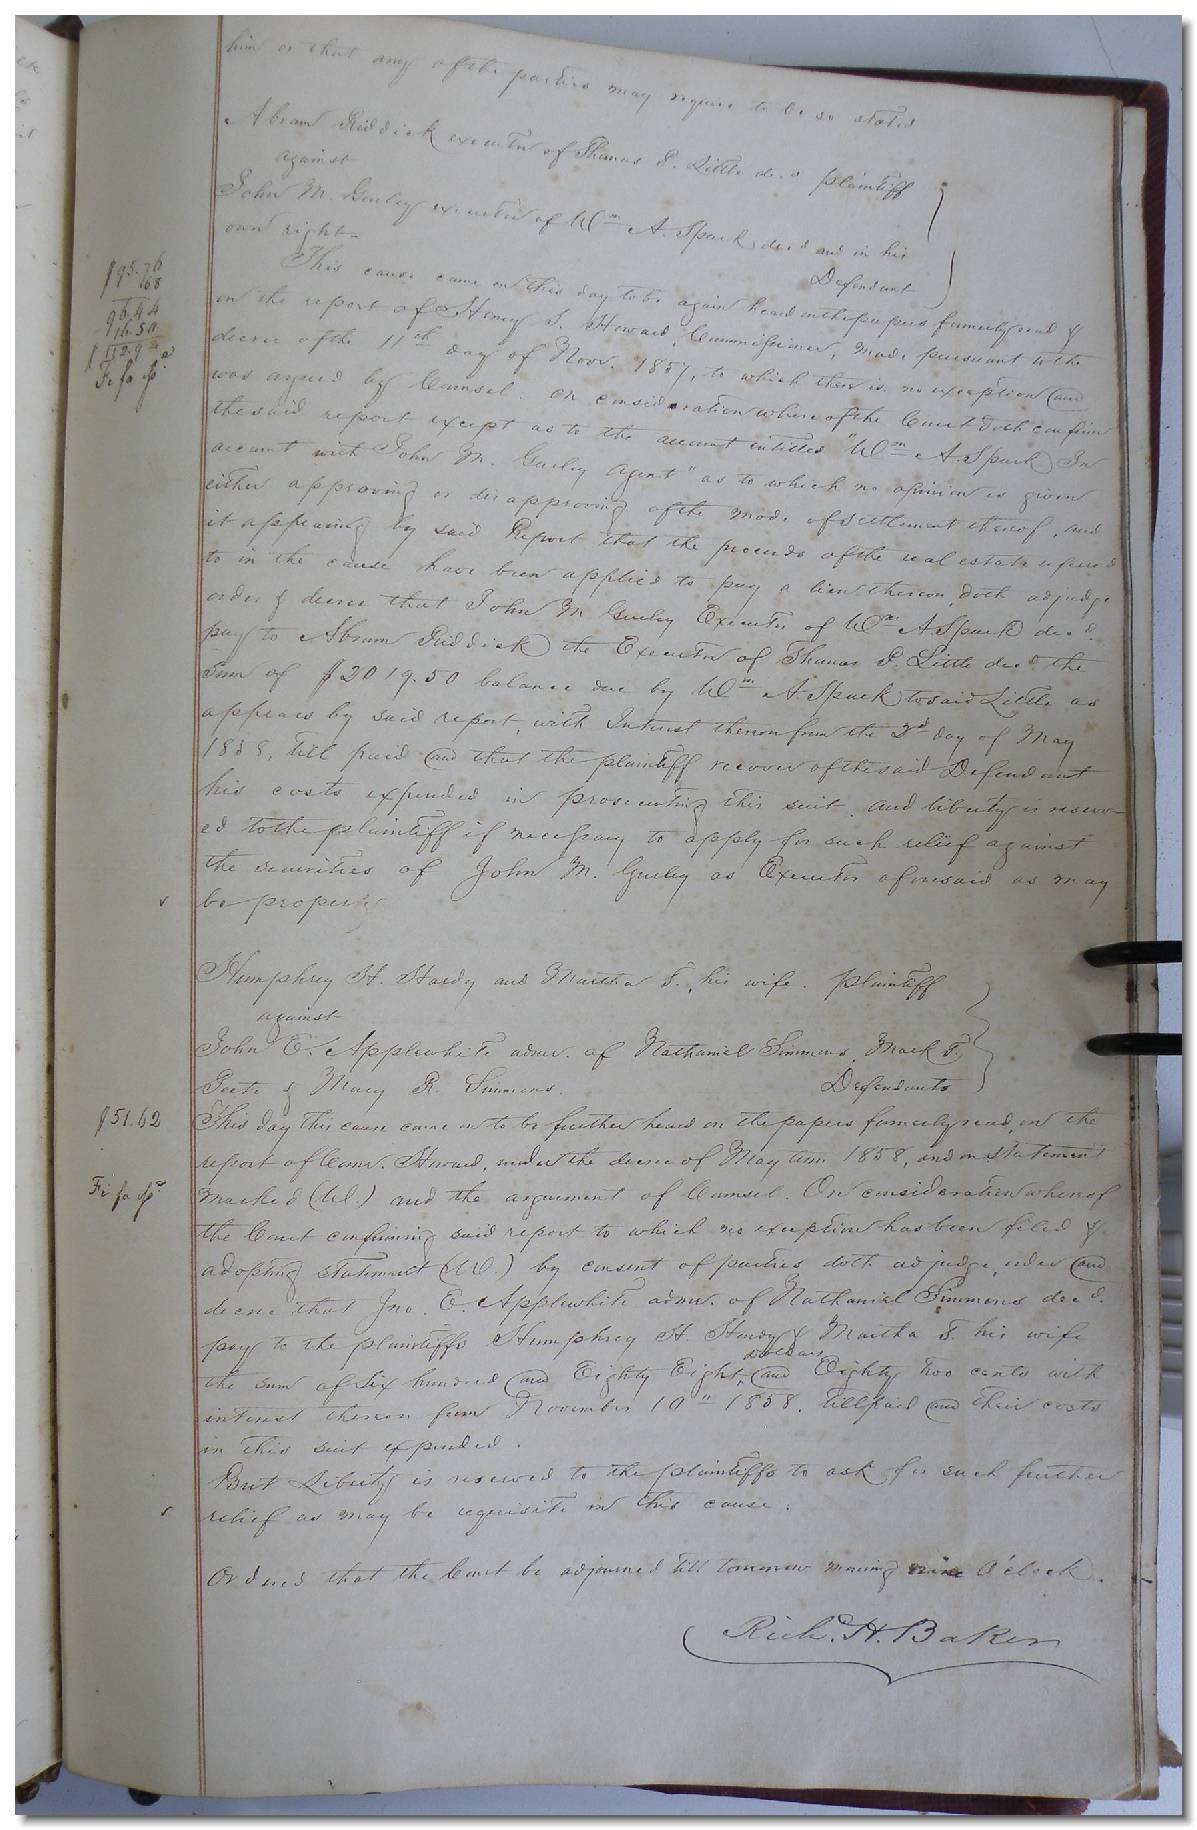 him or that any of the parties may require to be so stated
Abram Riddick executor of Thomas P. Little decd plaintiff
against
John M. Gurley executor of Wm A. Spark decd and in his
own right Defendant
$95.76
.68
96.44
16.50
$112.9
Fi fa ip
This cause came on this day to be again heard on the papers formerly read &
on the report of Henry S. Howard, Commissioner, made pursuant to the
decree of the 11th day of Novr. 1857, to which there is no exception and
was argued by Counsel: on consideration whereof the Court doth confirm
the said report except as to the account entitled "Wm A Spark In
account with John M. Gurley Agent" as to which no opinion is given
either approving or disapproving of the mode of settlement thereof, and
it appearing by said Report that the proceeds of the real estate referred
to in the cause have been applied to pay a lien thereon, doth adjudge
order & decree that John M Gurley Executor of Wm A Spark decd.
pay to Abram Riddick the Executor of Thomas P. Little decd the
Sum of $2019.50 balance due by Wm A Spark to said Little as
appears by said report, with Interest thereon from the 3d day of May
1858, till paid and that the plaintiff recover of the said Defendant
his costs expended in prosecuting this suit. And liberty is reserv-
ed to the plaintiff if necessary to apply for such relief against
the securities of John M. Gurley as Executor aforesaid as may
v be proper
Humphrey H. Hardy and Martha F., his wife. plaintiff
against
John E. Applewhite admr. of Nathaniel Simmons, Mark F.
Peete & Mary R. Simmons. Defendants
$51.62
This day this cause came on to be further heard on the papers formerly read, on the
report of Comr. Howard, under the decree of May term 1858, and on statement
Fi fa ip
marked (W.) and the arguement of Counsel. On consideration whereof
the Court confirming said report to which no exception has been filed &
adopting statement (W.) by consent of parties doth adjudge, order and
decree that Jno. E. Applewhite admr. of Nathaniel Simmons decd.
pay to the plaintiffs Humphrey H. Hardy & Martha F. his wife
the sum of Six hundred and Eighty Eight dollars and Eighty two cents with
interest thereon from November 10th 1858, till paid and their costs
in this suit expended.
But Liberty is reserved to the plaintiffs to ask for such further
v relief as may be requisite in this cause.
Ordered that the Court be adjourned till tomorrow morning nine O'clock.
Rich. H. Baker